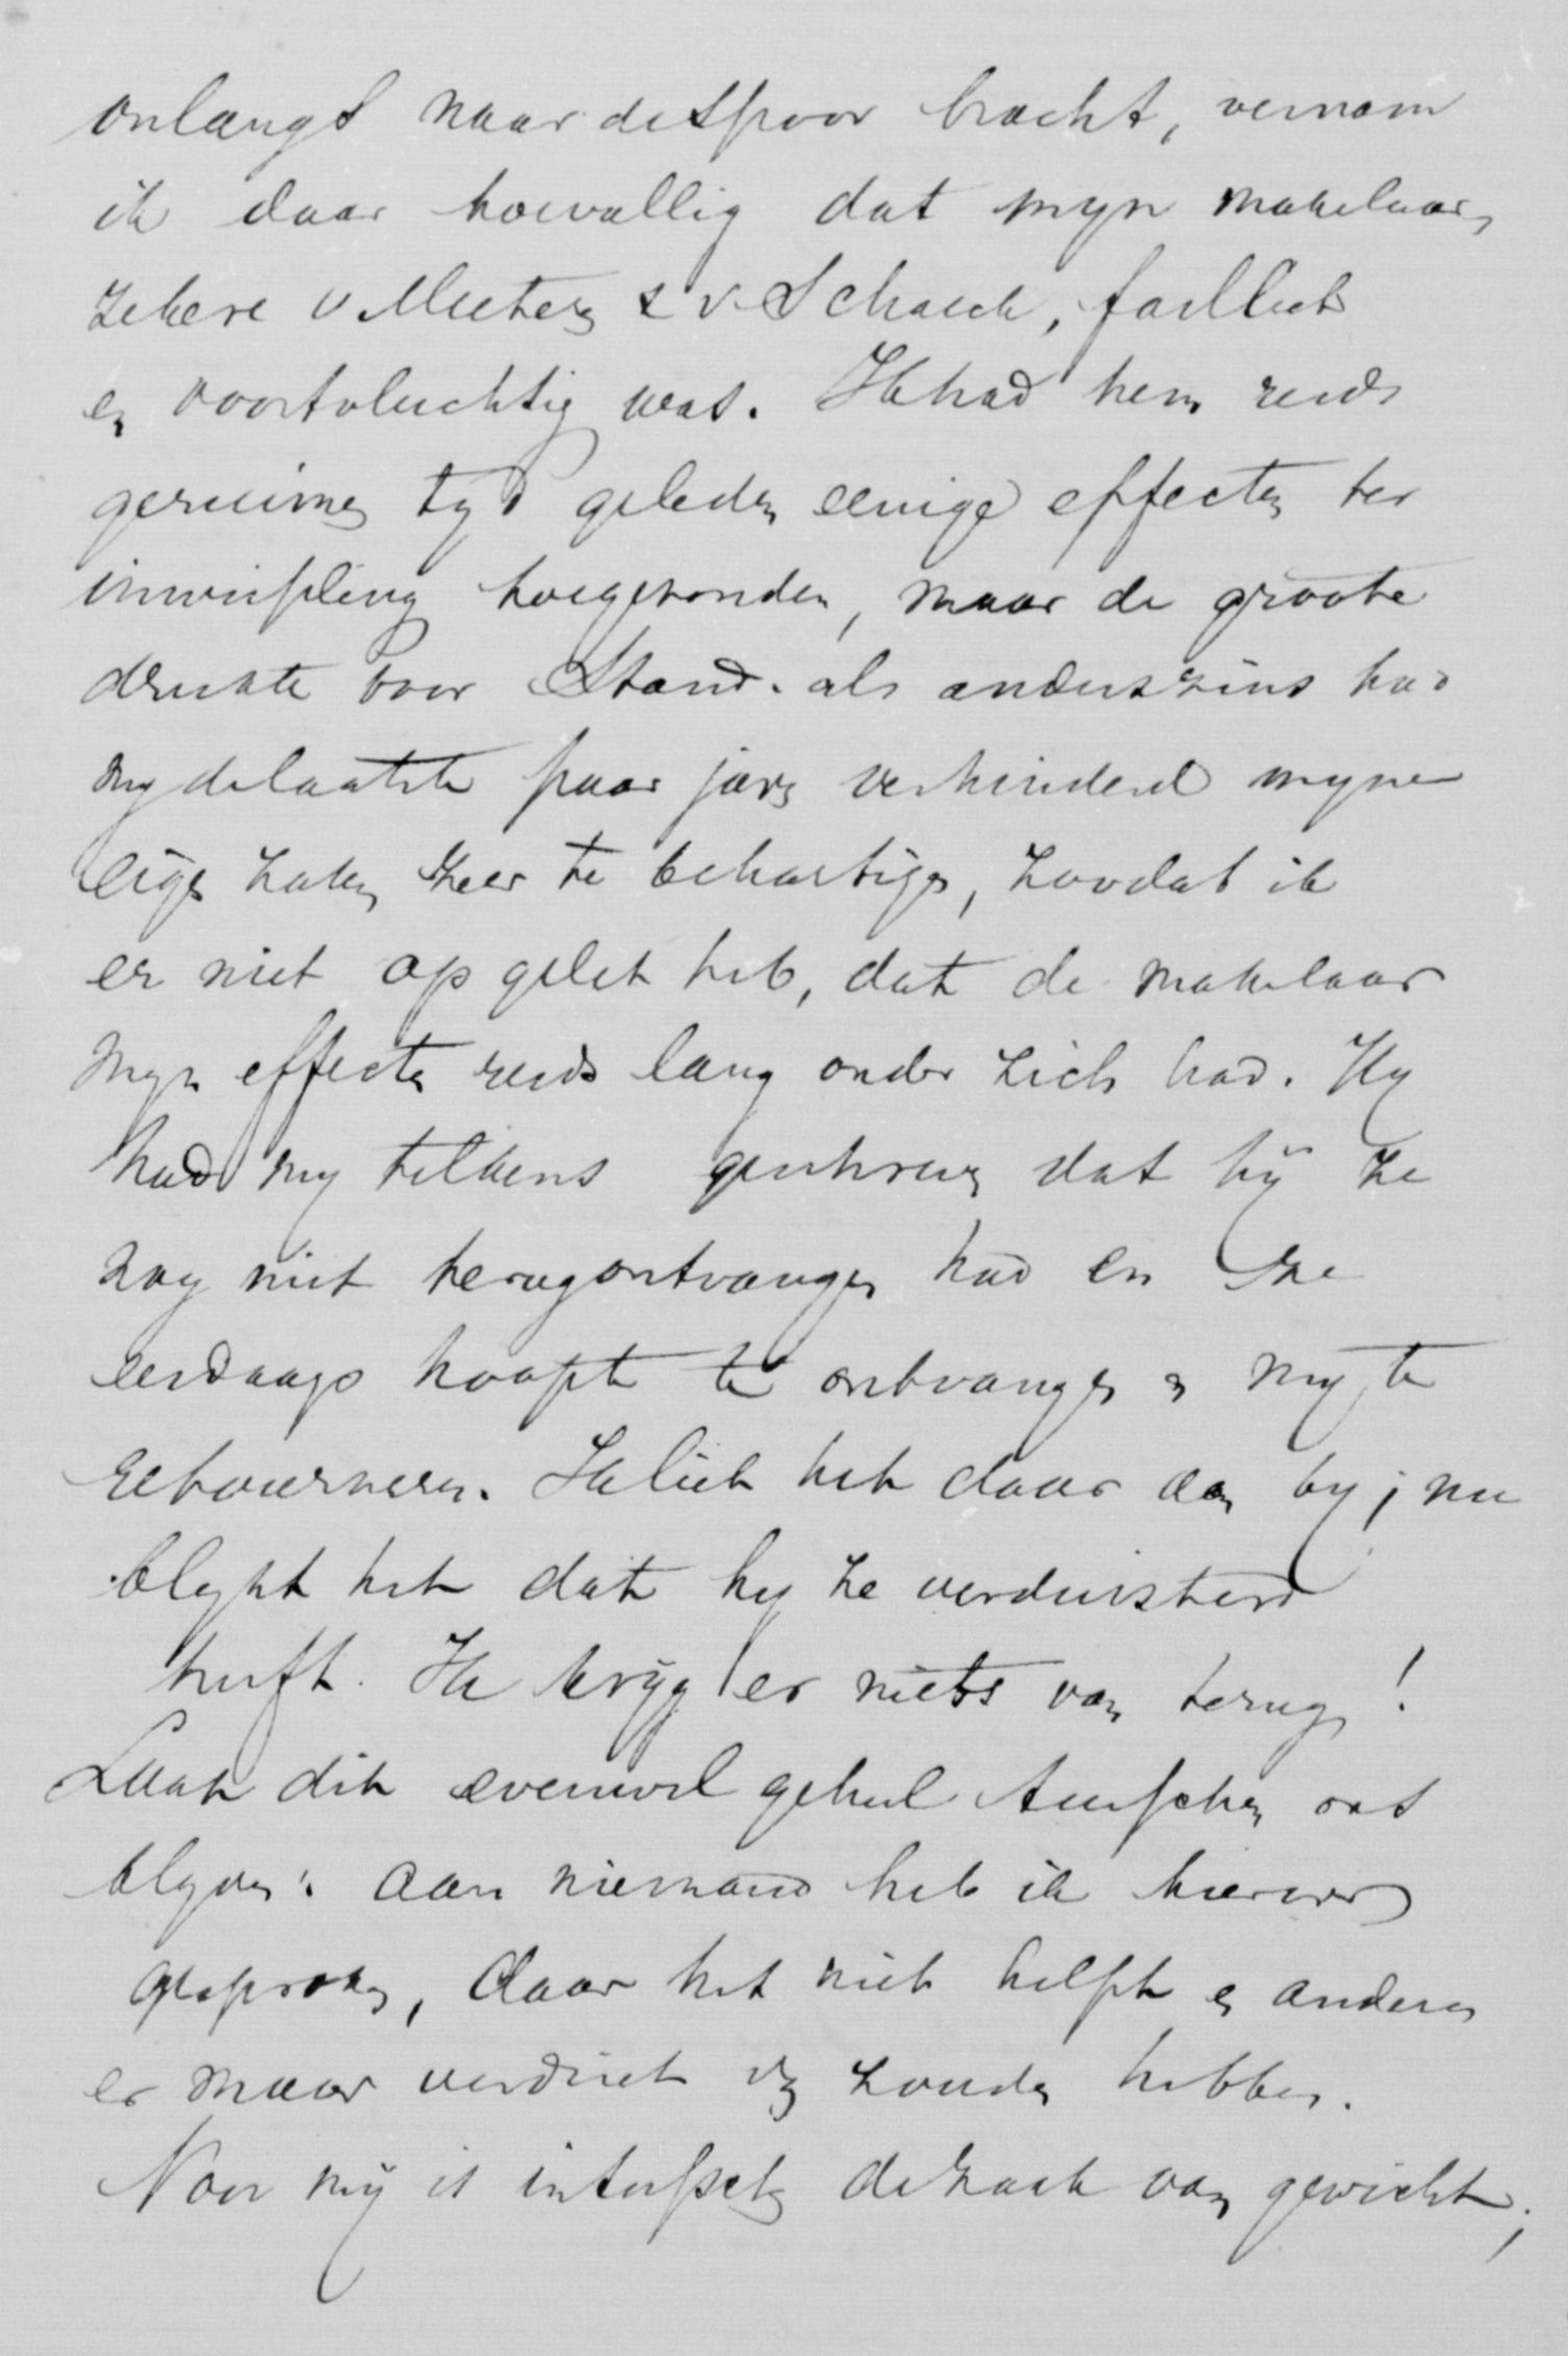 onlangs naar de spoor bracht, vernam
ik daar toevallig dat myn makelaar,
zekere v. Meeteren & v. Schaeck, failliet
en voortvluchtig was. Ik had hem reeds
geruimen tyd geleden eenige effecten ter
inwisseling toegezonden, maar de groote
drukte voor Stand. als anderszins had
my de laatste paar jaren verhinderd myne
eigen zaken zeer te behartigen, zoodat ik
er niet op gelet heb, dat de makelaar
myn effecten reeds lang onder zich had. Hy
had my telkens geschreven dat hij ze
nog niet terugontvangen had en ze
eerdaags hoopte te ontvangen en my te
retourneeren. Ik liet het daar dan by; nu
blykt het dat hy ze verduisterd
heeft. Ik krijg er niets van terug!
Laat dit evenwel geheel tusschen ons
blyven: aan niemand heb ik hierover
gesproken, daar het niet helpt en anderen
er maar verdriet v. zouden hebben.
Voor mij is intusschen de zaak van gewicht;